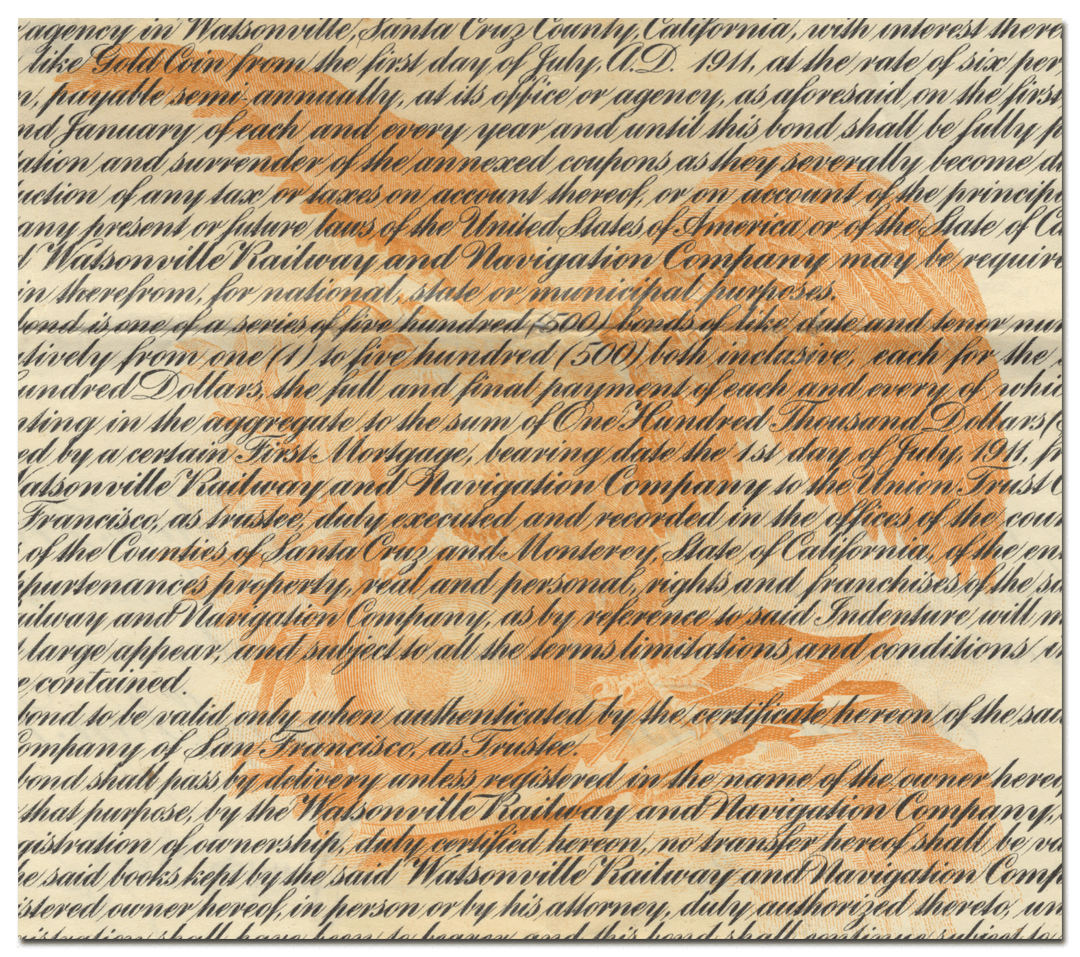 agency in Watsonville, Santa Cruz County, California, with interest there
like Gold Coin from the first day of July, A.D. 1911, at the rate of six per
n, payable semi-annually, at its office or agency, as aforesaid, on the first
nd January of each and every year and until this bond shall be fully p
ation and surrender of the annexed coupons as they severally become d
uction of any tax or taxes on account thereof, or on account of the princip
any present or future laws of the United States of America or of the State of Ca
d Watsonville Railway and Navigation Company may be require
in therefrom, for national, state or municipal purposes.
bond is one of a series of five hundred (500) bonds of like date and tenor nu
tively from one (1) to five hundred (500) both inclusive, each for the
undred Dollars, the full and final payment of each and every of whi
ting in the aggregate to the sum of One Hundred Thousand Dollars (
ed by a certain First Mortgage, bearing date the 1st day of July, 1911, fr
atsonville Railway and Navigation Company to the Union Trust C
Francisco, as trustee, duly executed and recorded in the offices of the coun
of the Counties of Santa Cruz and Monterey, State of California, of the en
purtenances property, real and personal, rights and franchises of the sa
ilway and Navigation Company, as by reference to said Indenture will m
large appear, and subject to all the terms limitations and conditions i
e contained.
bond to be valid only when authenticated by the certificate hereon of the sai
ompany of San Francisco, as Trustee.
bond shall pass by delivery unless registered in the name of the owner hereo
that purpose, by the Watsonville Railway and Navigation Company,
gistration of ownership, duly certified hereon, no transfer hereof shall be va
he said books kept by the said Watsonville Railway and Navigation Comp
istered owner hereof, in person or by his attorney, duly authorized thereto, un
istration shall have been to bearer and this bond shall continue subject to